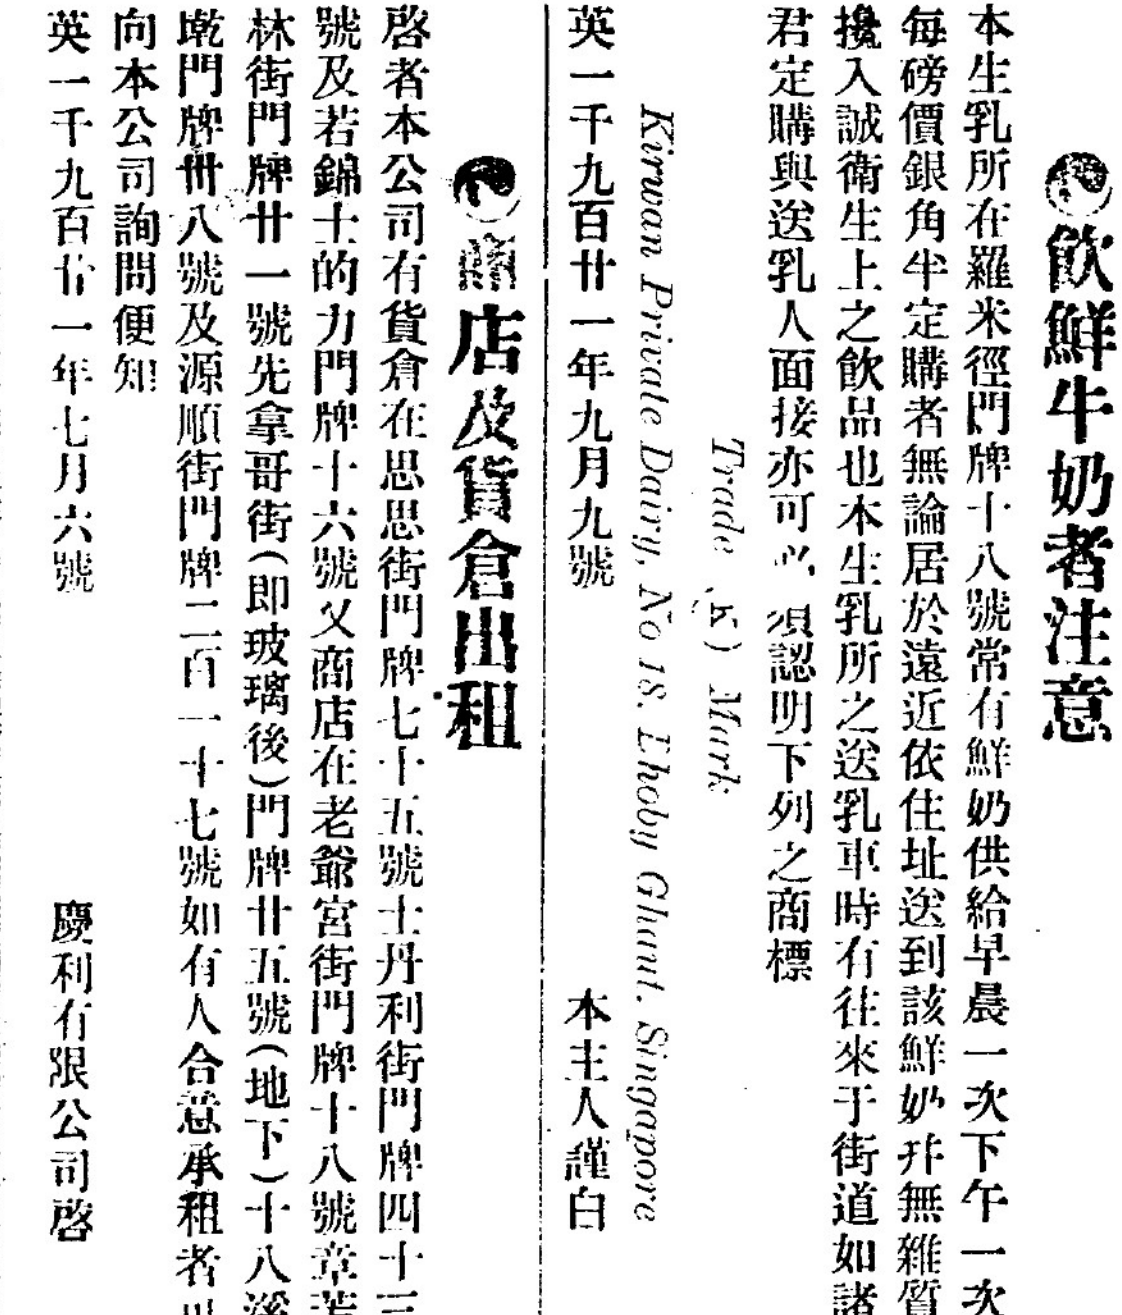 飲鮮牛奶者注意
本生乳所在羅米徑門牌十八號常有鮮奶供給早晨一次下午一次
每磅價銀角半定購者無論居於遠近依住址送到該鮮奶幷無雜質
攙入誠衛生上之飲品也本生乳所之送乳車時有往來于街道如諸
君定購與送乳人面接亦可 須認明下列之商標
Trade (K) Mark
Kirwan Private Dairy, No 18. Lhoby Ghaut. Singapore
英一千九百廿一年九月九號 本主人謹白
店及貨倉出租
啓者本公司有貨倉在思思街門牌七十五號士丹利街門牌四十三
號及若錦士的力門牌十六號又商店在老爺宮街門牌十八號章芳
林街門牌廿一號先拿哥街(即玻璃後)門牌廿五號(地下)十八溪
墘門牌卌八號及源順街門牌二百一十七號如有人合意承租者
向本公司詢問便知
英一千九百廿一年七月六號 慶利有限公司啓